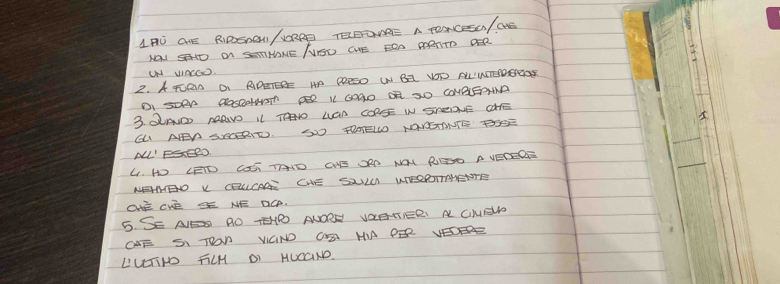 1. PIÙ CHE RIPOSARMI/VORREI TELEFONARE A FRANCESCA/CHE
NON SENTO DA SETTIMANE/VISTO CHE ERA PARTITA PER
UN VIAGGIO.
2. A FURIA DI RIPETERE HA PRESO UN BEL VOTO ALL'INTERROGAZIONE
DI STORIA PROGRAMMATA PER IL GIORNO DEL SUO COMPLEANNO
3. QUANDO ARRIVÒ IL TRENO LUCIA CORSE IN STAZIONE COME
GLI AVEVA SUGGERITO. SUO FRATELLO NONOSTANTE FOSSE
ALL'ESTERO.
4. HO LETTO COSÌ TANTO CHE ORA NON RIESCO A VEDERE
NEMMENO IL CELLULARE CHE SQUILLA INTERROTTAMENTE
CHÈ CHÈ SE NE DICA.
5. SE AVESSI PIÙ TEMPO ANDREI VOLENTIERI AL CINEMA
CHE SI TROVA VICINO CASA MIA PER VEDERE
L'ULTIMO FILM DI MUCCINO.